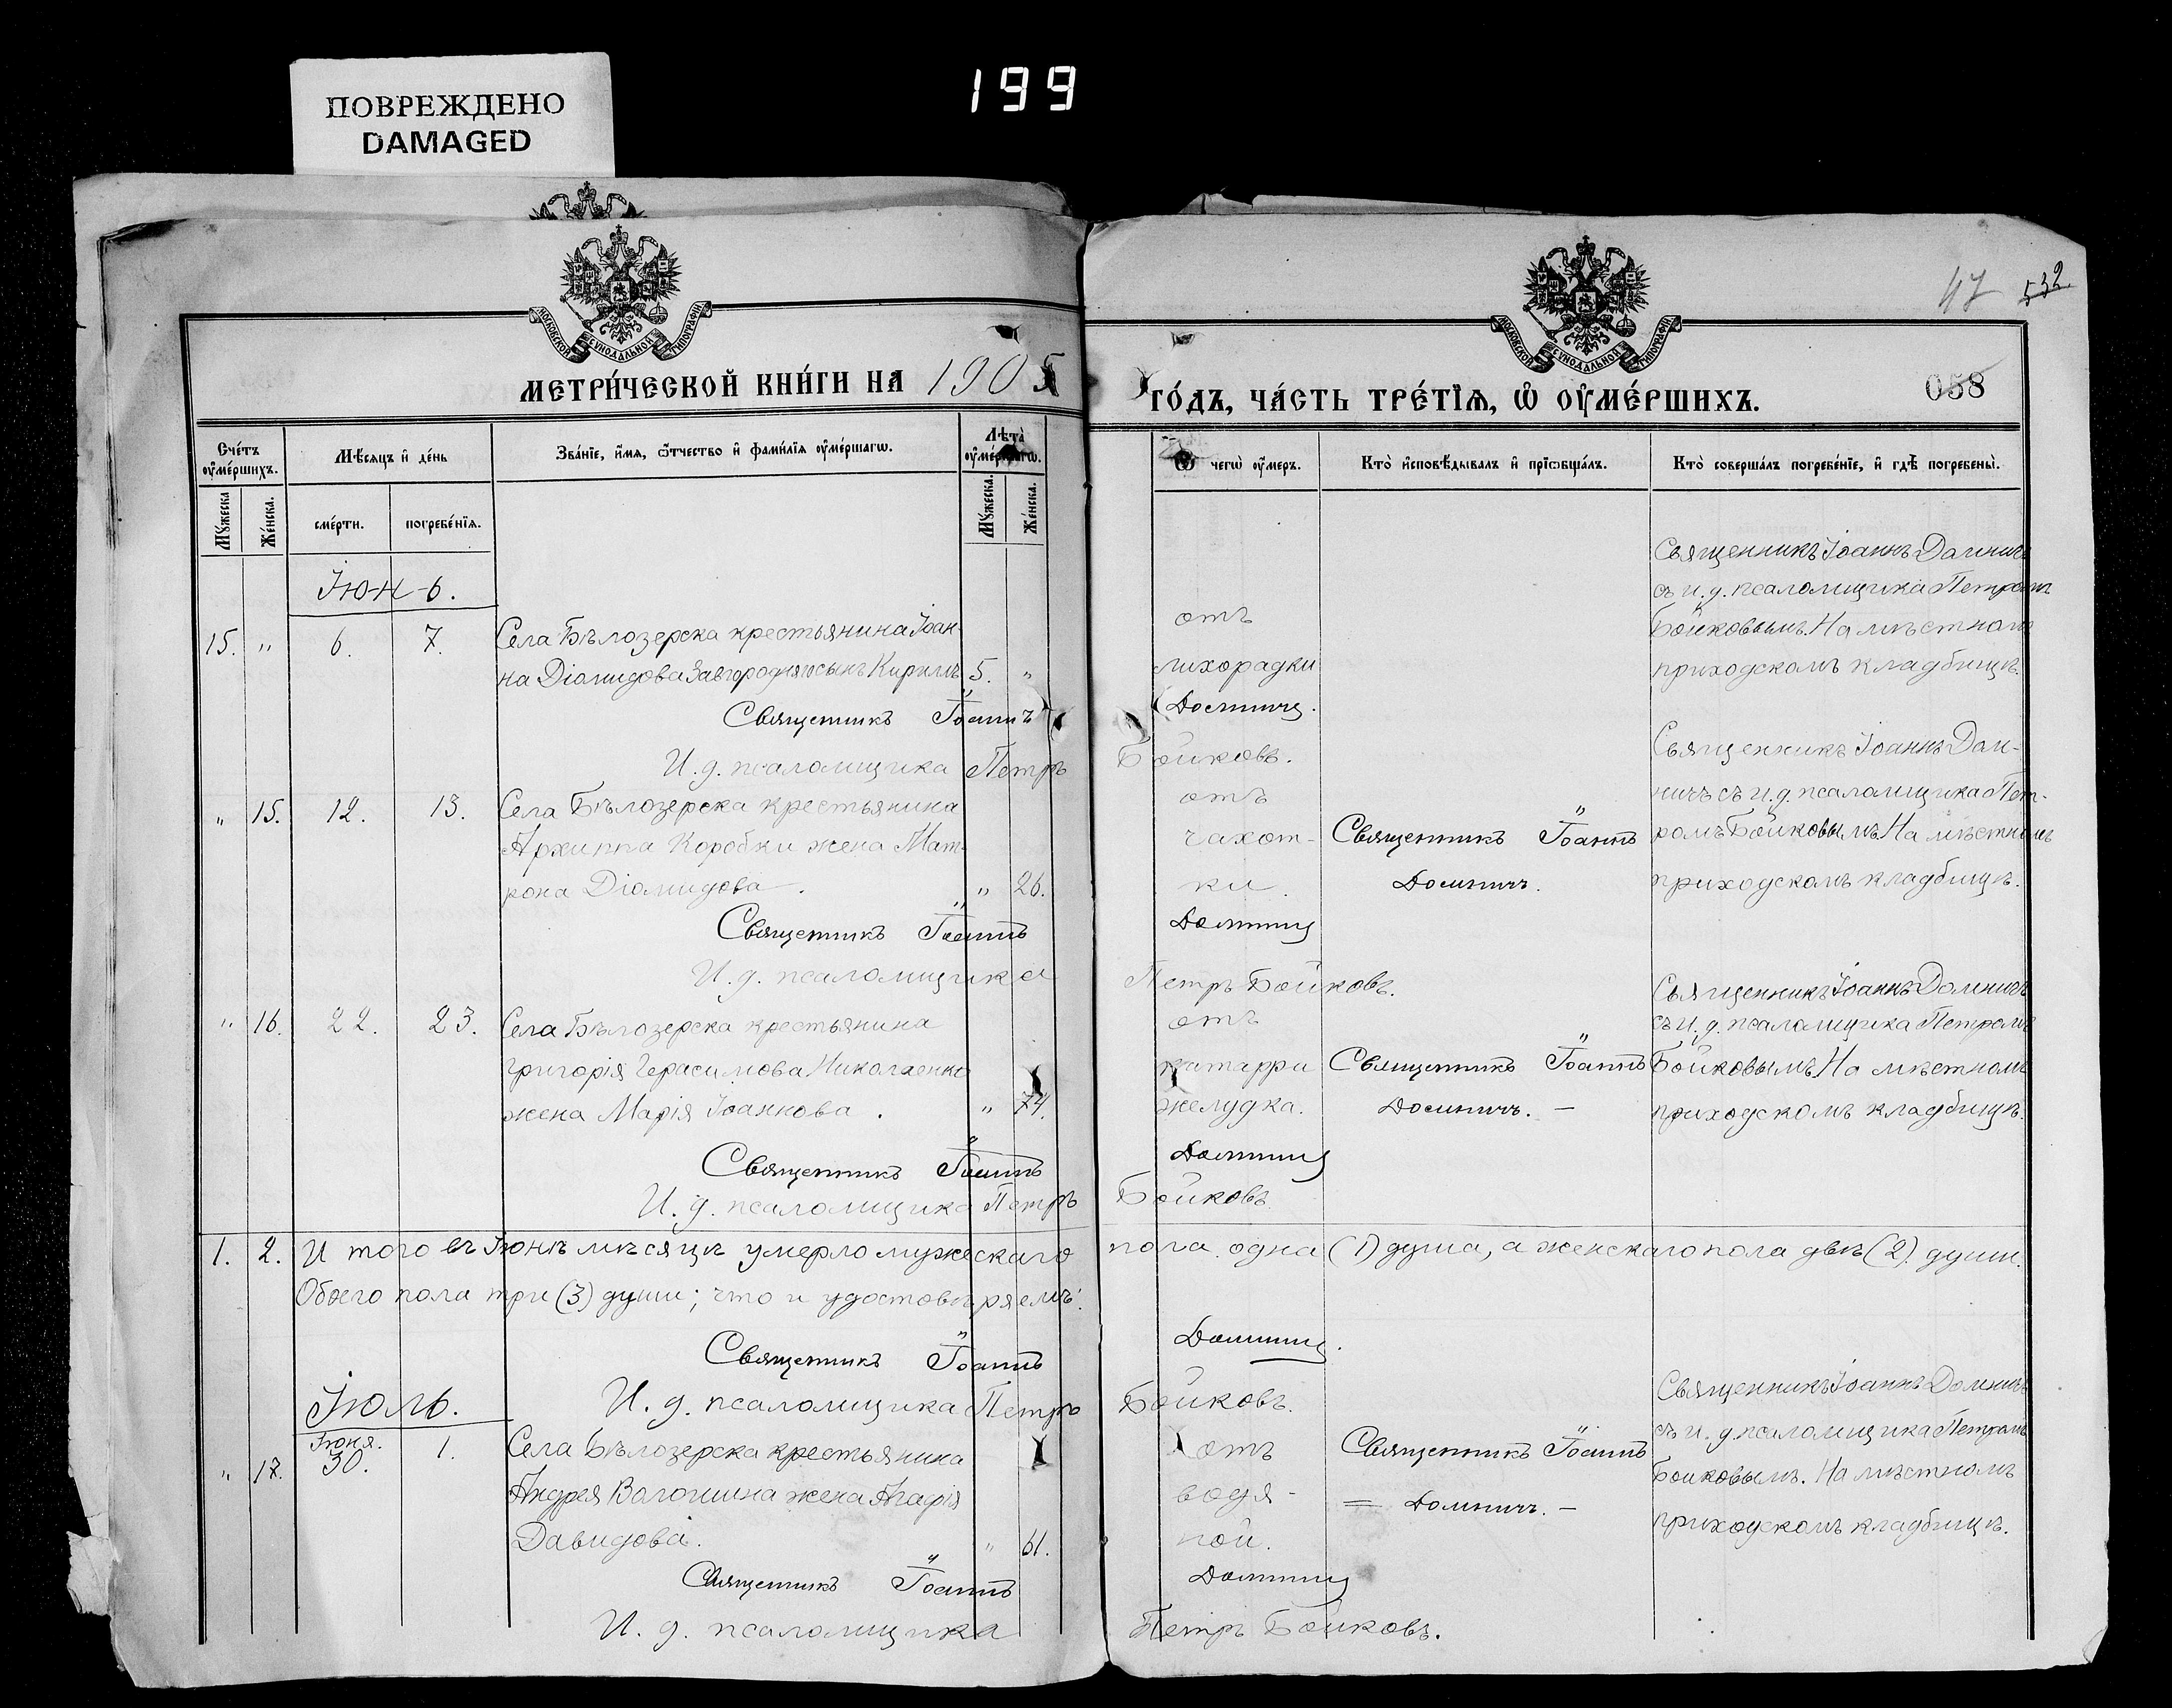 ПОВРЕЖДЕНО
DAMAGED
199
47 532
058
МОСКОВСКОЙ СѴНОДАЛЬНОЙ ТИПОГРАФІИ
МОСКОВСКОЙ СѴНОДАЛЬНОЙ ТИПОГРАФІИ
МЕТРИ́ЧЕСКОЙ КНИ́ГИ НА 1905
ГО́ДЪ, ЧА́СТЬ ТРЕ́ТІѦ, Ѡ҆ ОУ҆МЕ́РШИХЪ.
Сче́тъ оу҆ме́ршихъ.
Мѣ́сяцъ и҆ де́нь
Зва́ніе, и҆́мя, ѻ҆́тчество и҆ фами́лія оу҆ме́ршагѡ.
Лѣ́та оу҆ме́ршагѡ.
Ѿ чегѡ̀ оу҆́меръ.
Кто̀ и҆сповѣ́дывалъ и҆ пріѡбща́лъ.
Кто̀ соверша́лъ погребе́ніе, и҆ гдѣ̀ погребены̀.
Мꙋ́жеска
Же́нска.
сме́рти.
погребе́нія.
Мꙋ́жеска.
Же́нска.
Іюнь.
15. " 6. 7. Села Бѣлозерска крестьянина Іоан-
на Діомидова Завгородняго сынъ Кириллъ 5. "
отъ
лихорадки
Священникъ Іоаннъ Домничъ
съ и. д. псаломщика Петромъ
Бойковымъ. На мѣстномъ
приходскомъ кладбищѣ.
Священникъ Іоаннъ Домничъ.
И. д. псаломщика Петръ Бойковъ.
" 15. 12. 13. Села Бѣлозерска крестьянина
Архиппа Коробки жена Мат-
рона Діомидова. " 26.
отъ
чахот-
ки.
Священникъ Іоаннъ
Домничъ.
Священникъ Іоаннъ Дом-
ничъ съ и. д. псаломщика Пет-
ромъ Бойковымъ На мѣстномъ
приходскомъ кладбищѣ.
Священникъ Іоаннъ Домничъ
И. д. псаломщика Петръ Бойковъ.
" 16. 22. 23. Села Бѣлозерска крестьянина
Григорія Герасимова Николаенко
жена Марія Іоаннова. " 74.
отъ
катарра
желудка.
Священникъ Іоаннъ
Домничъ. —
Священникъ Іоаннъ Домничъ
съ и. д. псаломщика Петромъ
Бойковымъ На мѣстномъ
приходскомъ кладбищѣ.
Священникъ Іоаннъ Домничъ
И. д. псаломщика Петръ Бойковъ
1. 2. И того въ Іюнѣ мѣсяцѣ умерло мужескаго пола одна (1) душа, а женскаго пола двѣ (2) души.
Обоего пола три (3) души; что и удостовѣряемъ:
Священникъ Іоаннъ Домничъ.
И. д. псаломщика Петръ Бойковъ.
Іюль.
Іюня.
" 17. 30. 1. Села Бѣлозерска крестьянина
Андрея Волошина жена Агафія
Давидова. " 61.
отъ
водя-
ной.
Священникъ Іоаннъ
= Домничъ. —
Священникъ Іоаннъ Домничъ
съ и. д. псаломщика Петромъ
Бойковымъ. На мѣстномъ
приходскомъ кладбищѣ.
Священникъ Іоаннъ Домничъ
И. д. псаломщика Петръ Бойковъ.